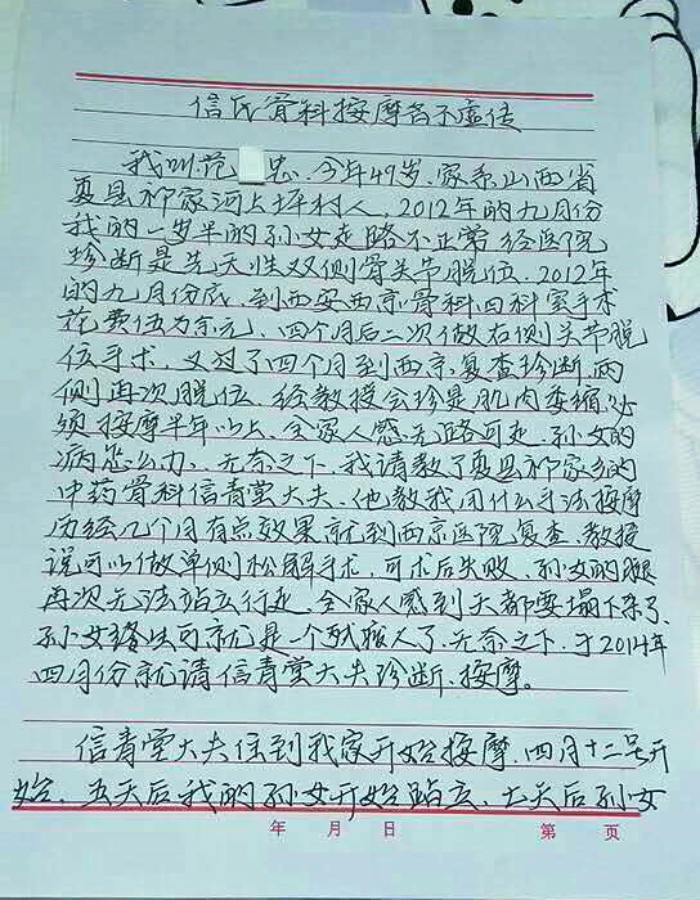 信氏骨科按摩名不虚传
我叫范 忠、今年49岁、家系山西省
夏县祁家河上坪村人、2012年的九月份
我的一岁半的孙女走路不正常经医院
珍断是先天性双侧骨关节脱位、2012年
的九月份底、到西安西京骨科四科室手术
花费伍万余元、四个月后二次做右侧关节脱
位手术、又过了四个月到西京复查珍断、两
侧再次脱位、经教授会珍是肌肉委缩、必
须按摩半年以上、全家人感无路可走、孙女的
病怎么办、无奈之下、我请教了夏县祁家乡的
中药骨科信青堂大夫、他教我用什么手法按摩
历经几个月有点效果就到西京医院复查、教授
说可以做单侧松解手术、可术后失败、孙女的腿
再次无法站立行走、全家人感到天都要塌下来了、
孙女终生可就是一个残疾人了、无奈之下、于2014年
四月份就请信青堂大夫珍断、按摩。
信青堂大夫住到我家开始按摩、四月十二号开
始、五天后我的孙女开始站立、七天后孙女
年 月 日 第 页